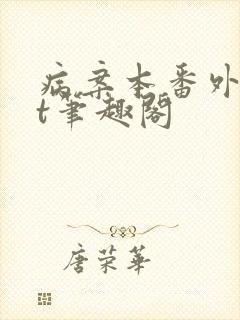 病案本番外
t笔趣阁
唐荣华